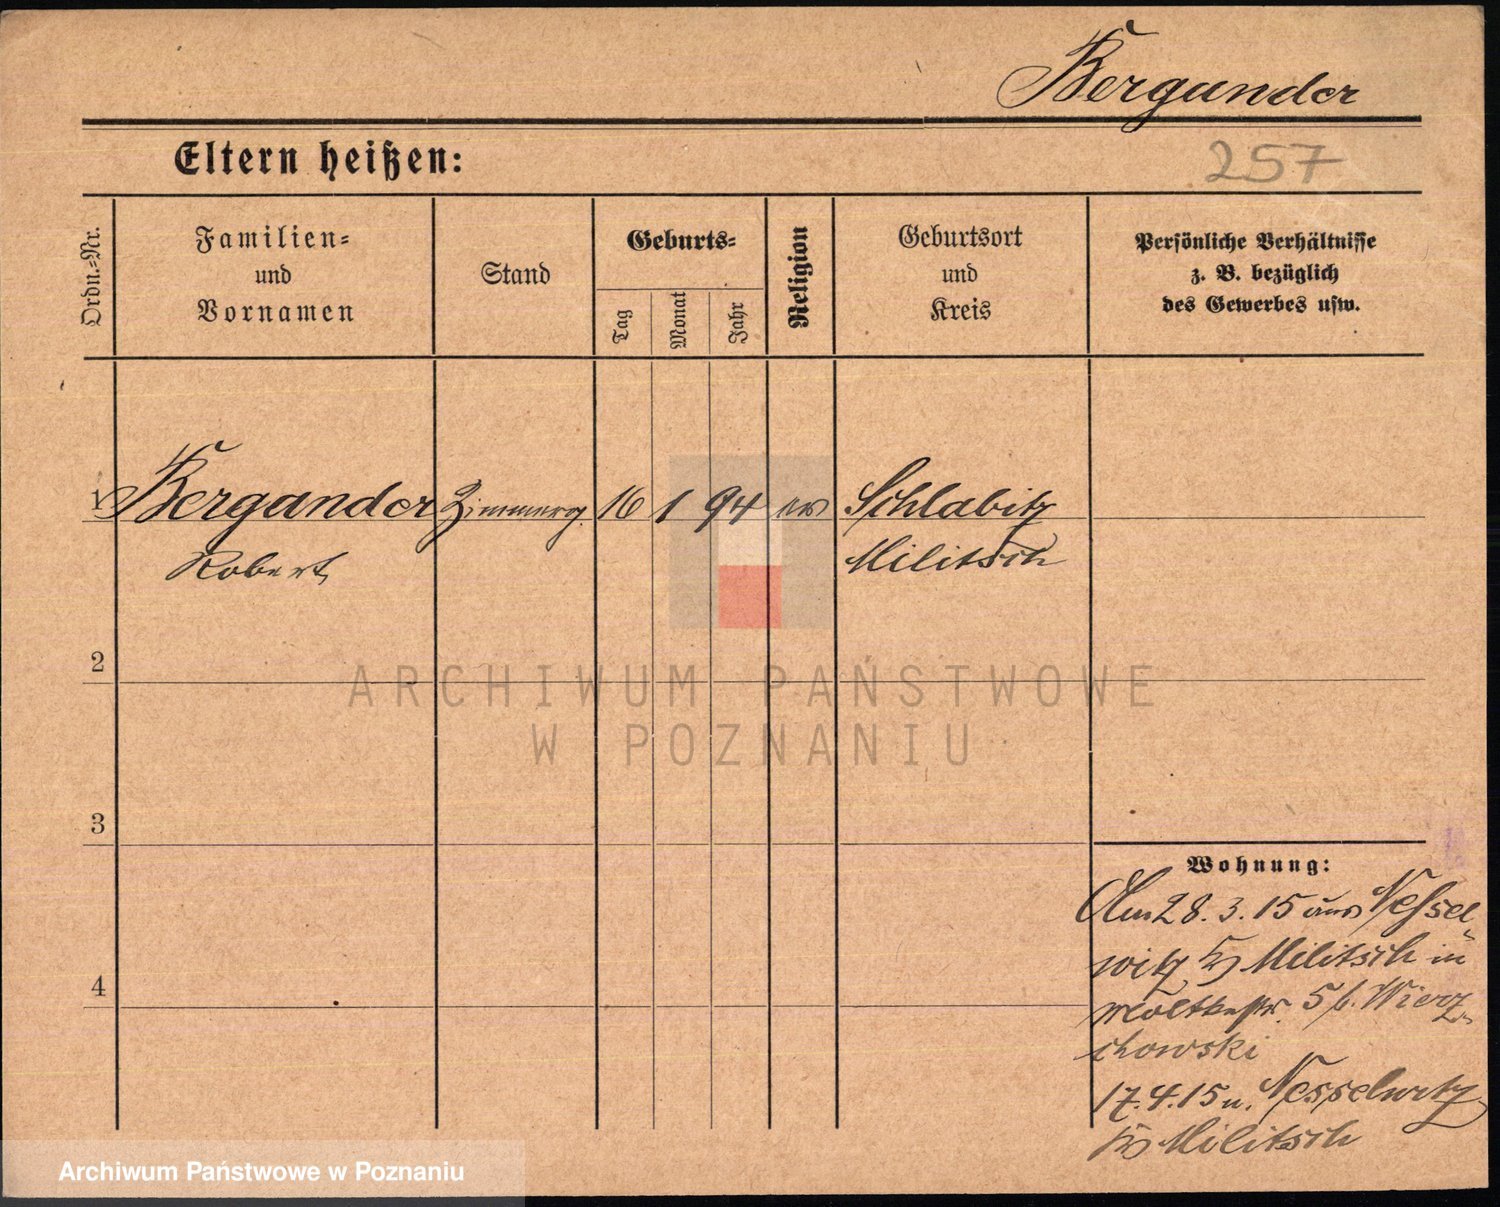 Bergander
Eltern heißen:
257
Ordn.-Nr.
Familien-
und
Vornamen
Stand
Geburts-
Tag
Monat
Jahr
Religion
Geburtsort
und
Kreis
Persönliche Verhältnisse
z. B. bezüglich
des Gewerbes usw.
1 Bergander Zimmerg. 16 1 94 ev Schlabitz
Robert Militsch
2
3
4
Wohnung:
Am 28. 3. 15 aus Nessel
witz Kr Militsch in
Moltkestr. 5 b. Wierz
chowski
17.4.15 n. Nesselwitz
Kr Militsch
ARCHIWUM PAŃSTWOWE
W POZNANIU
Archiwum Państwowe w Poznaniu